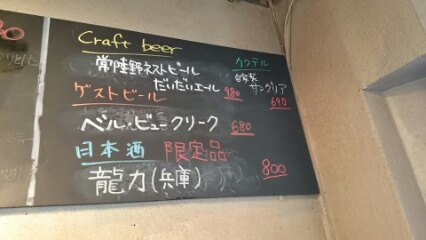 Craft beer
常陸野ネストビール
だいだいエール 980
ゲストビール
ベル・ビュークリーク 680
日本酒 限定品
龍力(兵庫) 800
カクテル
自家製
サングリア
690